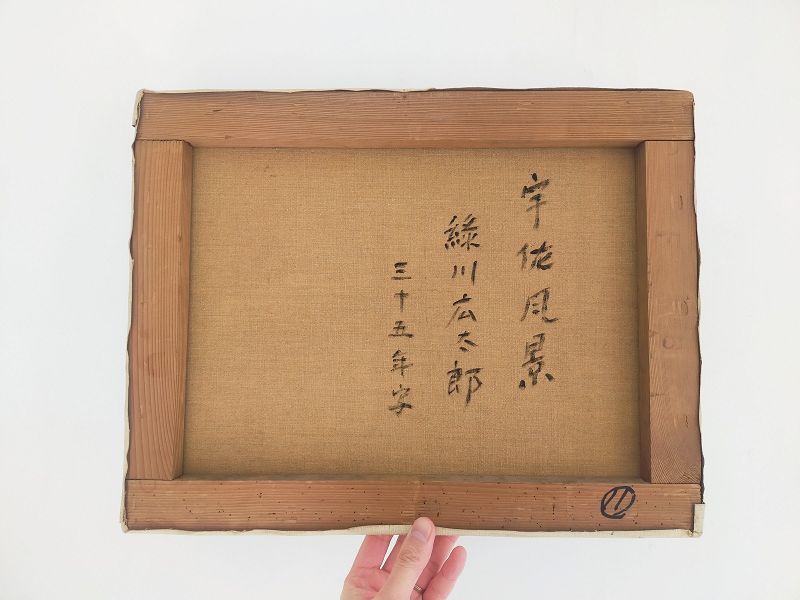 宇佐風景
緑川広太郎
三十五年字
11